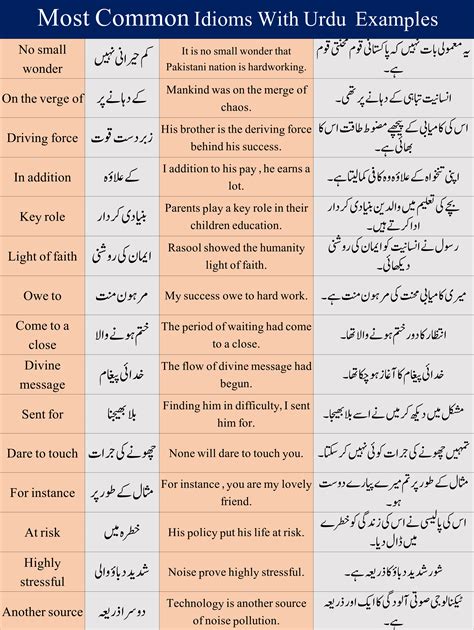 Most Common Idioms With Urdu Examples
No small
wonder
کم حیرانی نہیں
It is no small wonder that
Pakistani nation is hardworking.
یہ معمولی بات نہیں کہ پاکستانی قوم محنتی قوم
ہے۔
On the verge of
کے دہانے پر
Mankind was on the merge of
chaos.
انسانیت تباہی کے دہانے پر تھی۔
Driving force
زبردست قوت
His brother is the deriving force
behind his success.
اس کی کامیابی کے پیچھے مضبوط طاقت اس کا
بھائی ہے۔
In addition
کے علاوہ
I addition to his pay , he earns a
lot.
اپنی تنخواہ کے علاوہ وہ کافی کما لیتا ہے۔
Key role
بنیادی کردار
Parents play a key role in their
children education.
بچے کی تعلیم میں والدین بنیادی کردار
ادا کرتے ہیں۔
Light of faith
ایمان کی روشنی
Rasool showed the humanity
light of faith.
رسول نے انسانیت کو ایمان کی روشنی
دیکھائی۔
Owe to
مرہون منت
My success owe to hard work.
میری کامیابی محنت کی مرہون منت ہے۔
Come to a
close
ختم ہونے والا
The period of waiting had come
to a close.
انتظار کا دور ختم ہونے والا تھا۔
Divine
message
خدائی پیغام
The flow of divine message had
begun.
خدائی پیغام کا آغاز ہو چکا تھا۔
Sent for
بلا بھیجنا
Finding him in difficulty, I sent
him for.
مشکل میں دیکھ کر میں نے اسے بلا بھیجا۔
Dare to touch
چھونے کی جرات
None will dare to touch you.
تمہیں چھونے کی جرات کوئی نہیں کر سکتا۔
For instance
مثال کے طور پر
For instance , you are my lovely
friend.
مثال کے طور پر تم میرے پیارے دوست
ہو۔
At risk
خطرہ میں
His policy put his life at risk.
اس کی پالیسی نے اس کی زندگی کو خطرے
میں ڈال دیا۔
Highly
stressful
شدید دباؤ والی
Noise prove highly stressful.
شور شدید دباؤ کا ذریعہ ہے۔
Another source
دوسرا ذریعہ
Technology is another source
of noise pollution.
ٹیکنالوجی صوتی آلودگی کا ایک اور ذریعہ
ہے۔